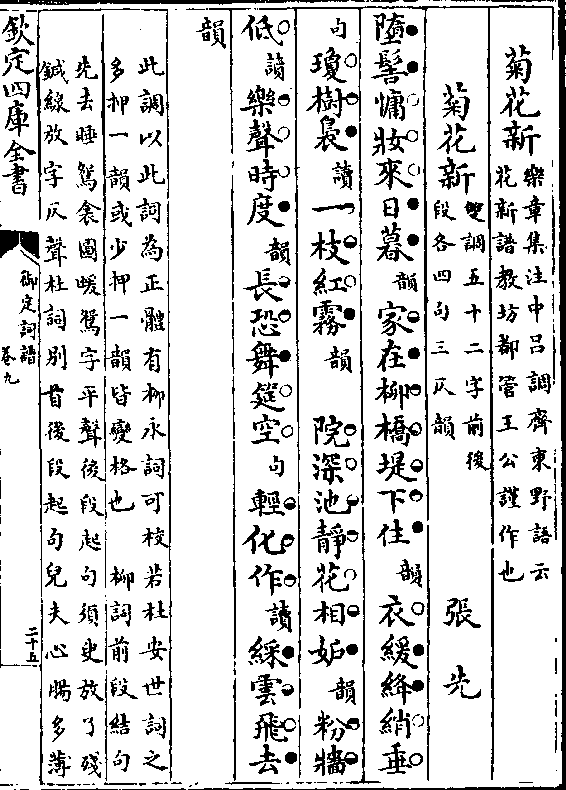 菊花新 樂章集注中呂調齊東野語云
花新譜教坊都管王公謹作也
菊花新 雙調五十二字前後
段各四句三仄韻 張先
墮髻慵妝來日暮韻家在柳橋堤下住韻衣緩絳綃垂
句瓊樹裊讀一枝紅霧韻 院深池靜花相妬韻粉牆
低讀樂聲時度韻長恐舞筵空句輕化作讀綵雲飛去
韻
此調以此詞為正體有柳永詞可校若杜安世詞之
多押一韻或少押一韻皆變格也 柳詞前段結句
先去睡鴛衾圖暖鴛字平聲後段起句須臾放了殘
鍼線放字仄聲杜詞別首後段起句兒夫心腸多薄
欽定四庫全書
御定詞譜
卷九
二十五